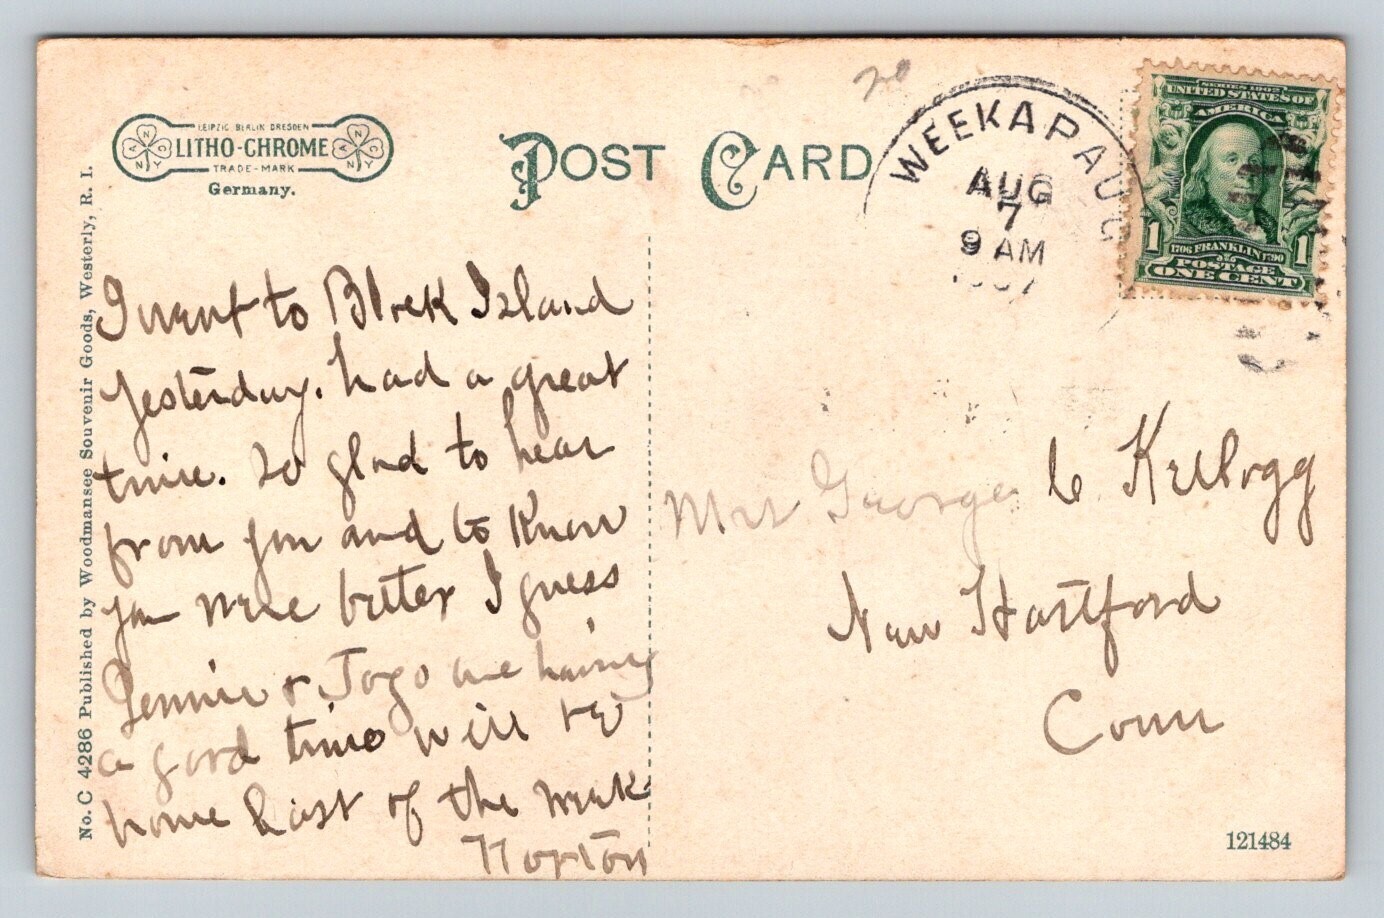 LEIPZIG BERLIN DRESDEN
LITHO-CHROME
TRADE-MARK
Germany.
POST CARD
WEEKAPAUG
AUG
7
9 AM
SERIES 1902
UNITED STATES OF
AMERICA
1 1706 FRANKLIN 1790 1
POSTAGE
ONE CENT
No. C 4286 Published by Woodmansee Souvenir Goods, Westerly, R. I.
I went to Block Island
yesterday. had a great
time. So glad to hear
from you and to know
you were better I guess
Jennie & Togo are having
a good time will be
home last of the week
Norton
Mrs George C. Kellogg
New Hartford
Conn
121484